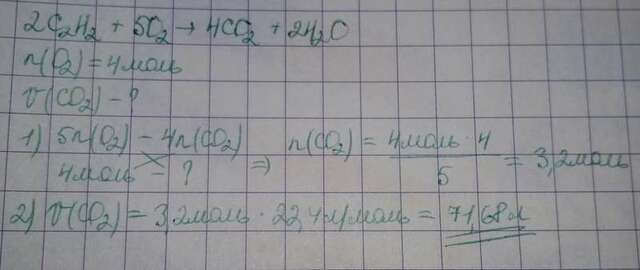 2C₂H₂ + 5O₂ → 4CO₂ + 2H₂O
n(O₂) = 4моль
V(CO₂) - ?
1) 5n(O₂) – 4n(CO₂) ⇒ n(CO₂) = 4моль · 4 / 5 = 3,2моль
4моль – ?
2) V(CO₂) = 3,2моль · 22,4л/моль = 71,68л